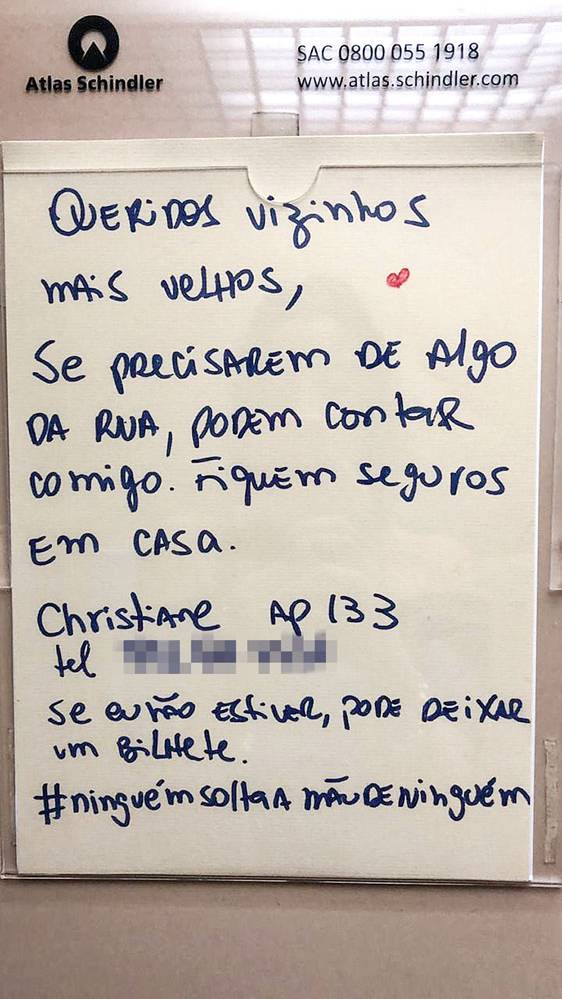 Atlas Schindler
SAC 0800 055 1918
www.atlas.schindler.com
QUERIDOS vizinhos
mais velhos,
Se precisarem de algo
da rua, podem contar
comigo. Fiquem seguros
em casa.
Christiane Ap 133
tel
se eu não estiver, pode deixar
um bilhete.
#ninguémsoltaamãodeninguém